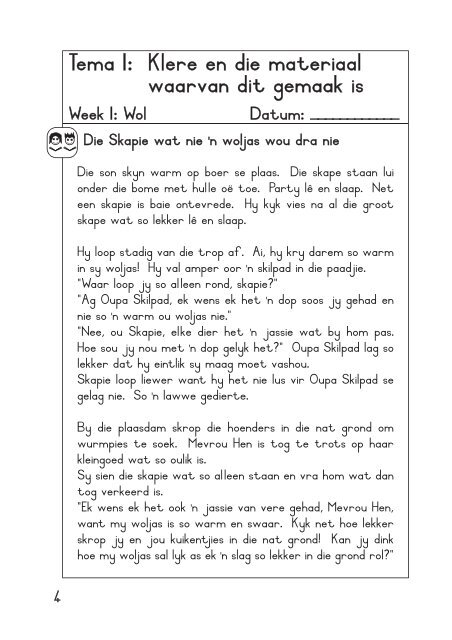 Tema 1: Klere en die materiaal
waarvan dit gemaak is
Week 1: Wol Datum: ____________
Die Skapie wat nie 'n woljas wou dra nie
Die son skyn warm op boer se plaas. Die skape staan lui
onder die bome met hulle oë toe. Party lê en slaap. Net
een skapie is baie ontevrede. Hy kyk vies na al die groot
skape wat so lekker lê en slaap.
Hy loop stadig van die trop af. Ai, hy kry darem so warm
in sy woljas! Hy val amper oor 'n skilpad in die paadjie.
"Waar loop jy so alleen rond, skapie?"
"Ag Oupa Skilpad, ek wens ek het 'n dop soos jy gehad en
nie so 'n warm ou woljas nie."
"Nee, ou Skapie, elke dier het 'n jassie wat by hom pas.
Hoe sou jy nou met 'n dop gelyk het?" Oupa Skilpad lag so
lekker dat hy eintlik sy maag moet vashou.
Skapie loop liewer want hy het nie lus vir Oupa Skilpad se
gelag nie. So 'n lawwe gedierte.
By die plaasdam skrop die hoenders in die nat grond om
wurmpies te soek. Mevrou Hen is tog te trots op haar
kleingoed wat so oulik is.
Sy sien die skapie wat so alleen staan en vra hom wat dan
tog verkeerd is.
"Ek wens ek het ook 'n jassie van vere gehad, Mevrou Hen,
want my woljas is so warm en swaar. Kyk net hoe lekker
skrop jy en jou kuikentjies in die nat grond! Kan jy dink
hoe my woljas sal lyk as ek 'n slag so lekker in die grond rol?"
4